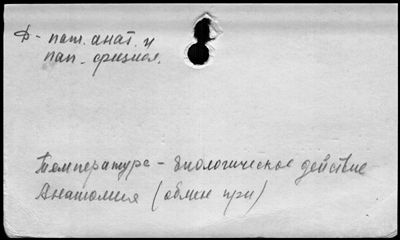 Ф - пат. анат. и
пат. физиол.
Температура - биологическое действие
Анатомия (обмен при)